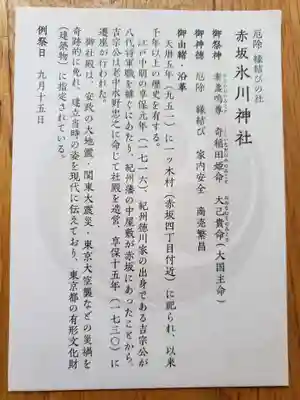 厄除 縁結びの社
赤坂氷川神社
御祭神 素盞嗚尊 奇稲田姫命 大己貴命(大国主命)
御神徳 厄除 縁結び 家内安全 商売繁昌
御由緒 沿革
天暦五年(九五一)に一ッ木村(赤坂四丁目付近)に祀られ、以来
千年以上の歴史を有する。
江戸中期の享保元年(一七一六)、紀州徳川家の出身である吉宗公が
八代将軍職を継ぐにあたり、紀州藩の中屋敷が赤坂にあったことから、
吉宗公は老中水野忠之に命じて社殿を造営、享保十五年(一七三〇)に
遷座が行われた。
御社殿は、安政の大地震・関東大震災・東京大空襲などの災禍を
奇跡的に免れ、建立当時の姿を現代に伝えており、東京都の有形文化財
(建築物)に指定されている。
例祭日 九月十五日